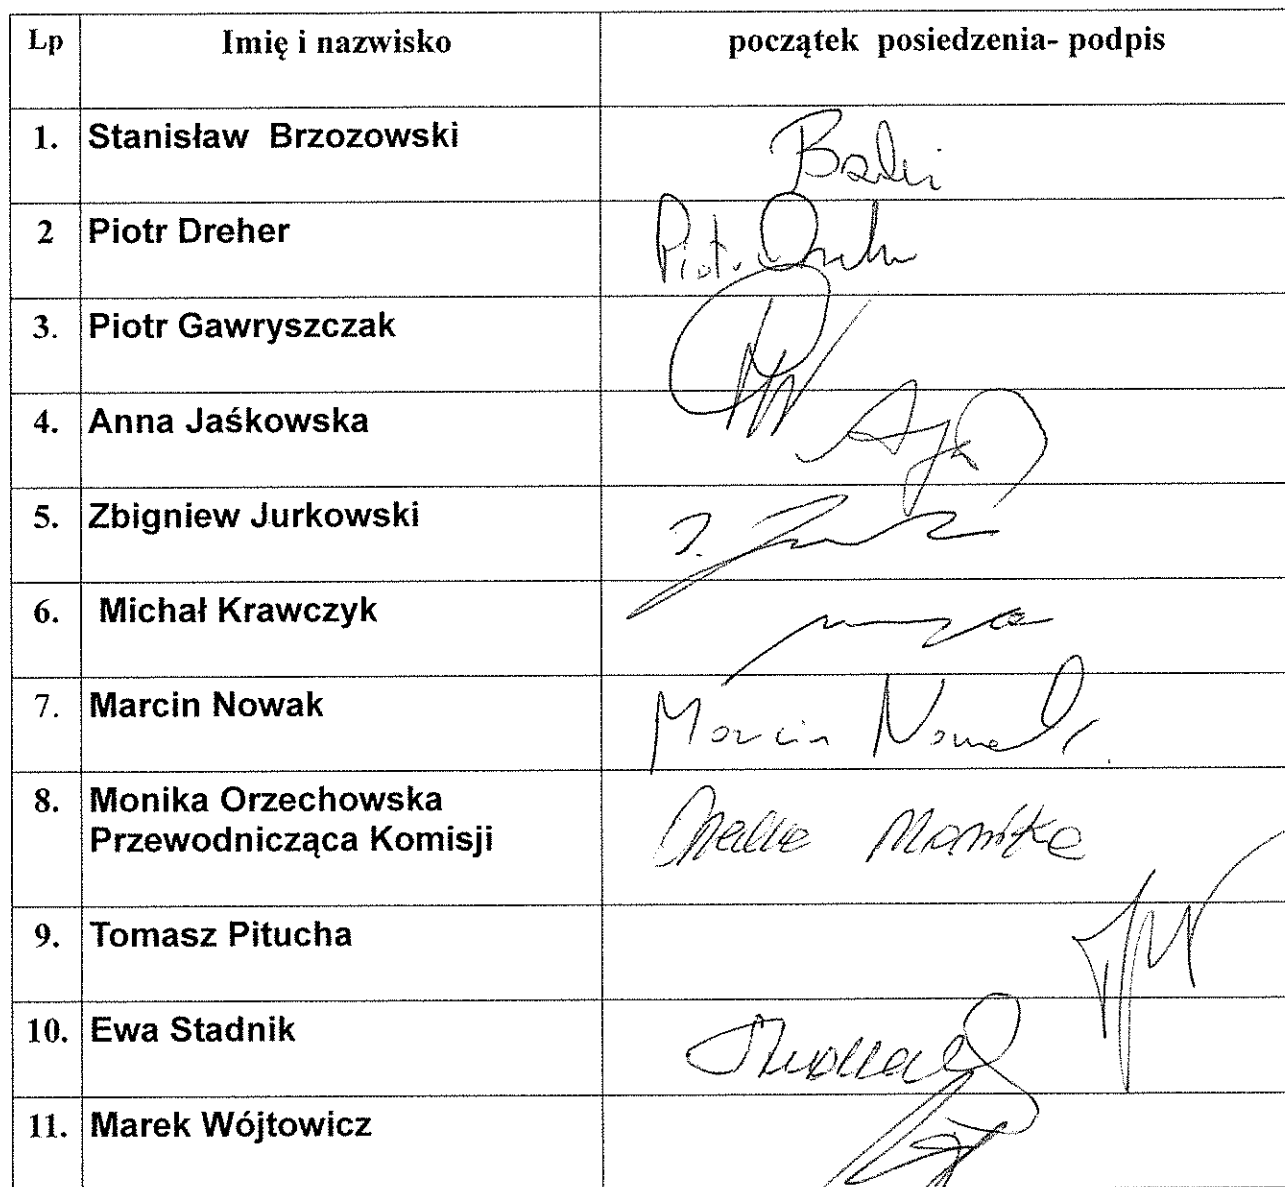 Lp Imię i nazwisko początek posiedzenia- podpis
1. Stanisław Brzozowski
2 Piotr Dreher Piotr
3. Piotr Gawryszczak
4. Anna Jaśkowska
5. Zbigniew Jurkowski
6. Michał Krawczyk
7. Marcin Nowak Marcin Nowak
8. Monika Orzechowska
Przewodnicząca Komisji Monika
9. Tomasz Pitucha
10. Ewa Stadnik
11. Marek Wójtowicz